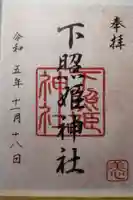 奉拝
下照姫神社
下照姫
神社
令和五年十一月十八日